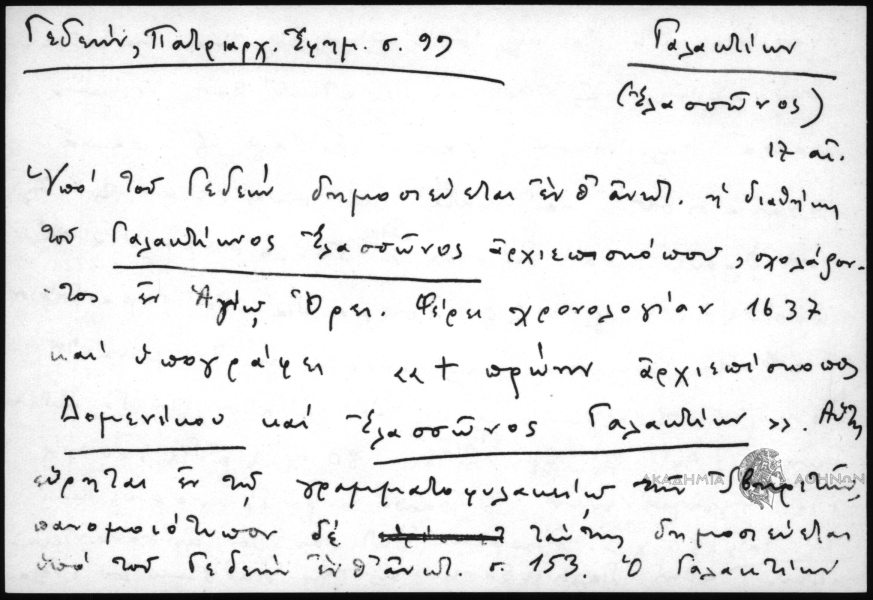 Γεδεών, Πατριαρχ. Ἐφημ. σ. 99
Γαλακτίων
(Ἐλασσῶνος)
17 αἰ.
Ὑπό τοῦ Γεδεών δημοσιεύεται ἐν θ' ἀνωτ. ἡ διαθήκη
τοῦ Γαλακτίωνος Ἐλασσῶνος ἀρχιεπισκόπου, σχολάζον-
τος ἐν Ἁγίῳ Ὄρει. Φέρει χρονολογίαν 1637
καί ὑπογράφει «+ πρώην ἀρχιεπίσκοπος
Δομενίκου καί Ἐλασσῶνος Γαλακτίων». Αὕτη
εὕρηται ἐν τῷ γραμματοφυλακείῳ τῶν Ἰβηριτῶν,
πανομοιότυπον δέ ταύτης δημοσιεύεται
ὑπό τοῦ Γεδεών ἐν θ' ἀνωτ. σ. 153. Ὁ Γαλακτίων
ΑΚΑΔΗΜΙΑ ΑΘΗΝΩΝ